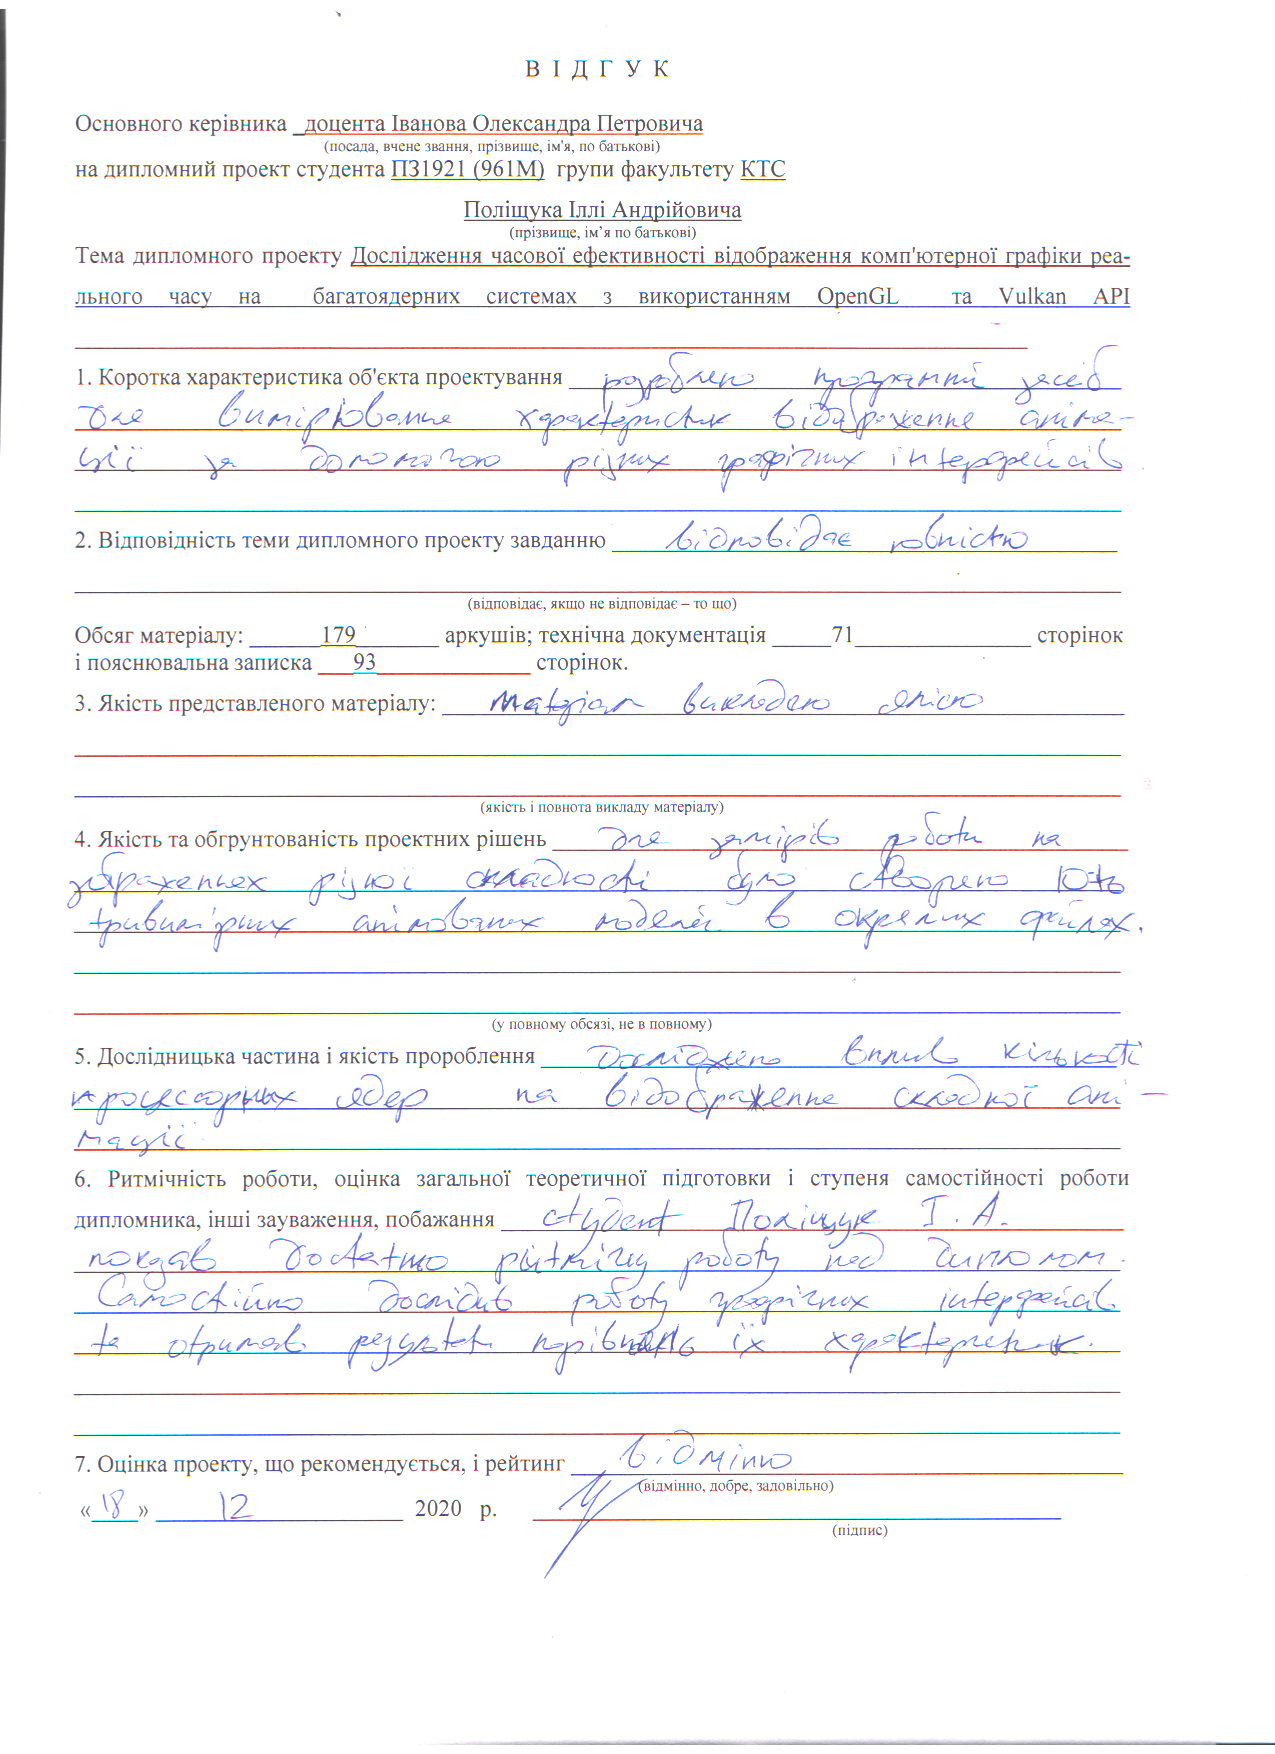 В І Д Г У К
Основного керівника _доцента Іванова Олександра Петровича
(посада, вчене звання, прізвище, ім'я, по батькові)
на дипломний проект студента ПЗ1921 (961М) групи факультету КТС
Поліщука Іллі Андрійовича
(прізвище, ім’я по батькові)
Тема дипломного проекту Дослідження часової ефективності відображення комп'ютерної графіки реа-
льного часу на багатоядерних системах з використанням OpenGL та Vulkan API
1. Коротка характеристика об'єкта проектування розроблено програмний засіб
для вимірювання характеристик відображення аніма-
ції за допомогою різних графічних інтерфейсів
2. Відповідність теми дипломного проекту завданню відповідає повністю
(відповідає, якщо не відповідає – то що)
Обсяг матеріалу: ______179_______ аркушів; технічна документація _____71_______________ сторінок
і пояснювальна записка ___93_____________ сторінок.
3. Якість представленого матеріалу: Матеріал викладено якісно
(якість і повнота викладу матеріалу)
4. Якість та обгрунтованість проектних рішень для замірів роботи на
зображеннях різної складності було створено 10-ть
тривимірних анімованих моделей в окремих файлах.
(у повному обсязі, не в повному)
5. Дослідницька частина і якість пророблення Досліджено вплив кількості
процессорных ядер на відображення складної ані-
мації
6. Ритмічність роботи, оцінка загальної теоретичної підготовки і ступеня самостійності роботи
дипломника, інші зауваження, побажання студент Поліщук І. А.
показав достатньо ритмічну роботу над дипломом.
Самостійно дослідив роботу графічних інтерфейсів
та отримав результати порівнянь їх характеристик.
7. Оцінка проекту, що рекомендується, і рейтинг відмінно
(відмінно, добре, задовільно)
«18» 12 2020 р.
(підпис)